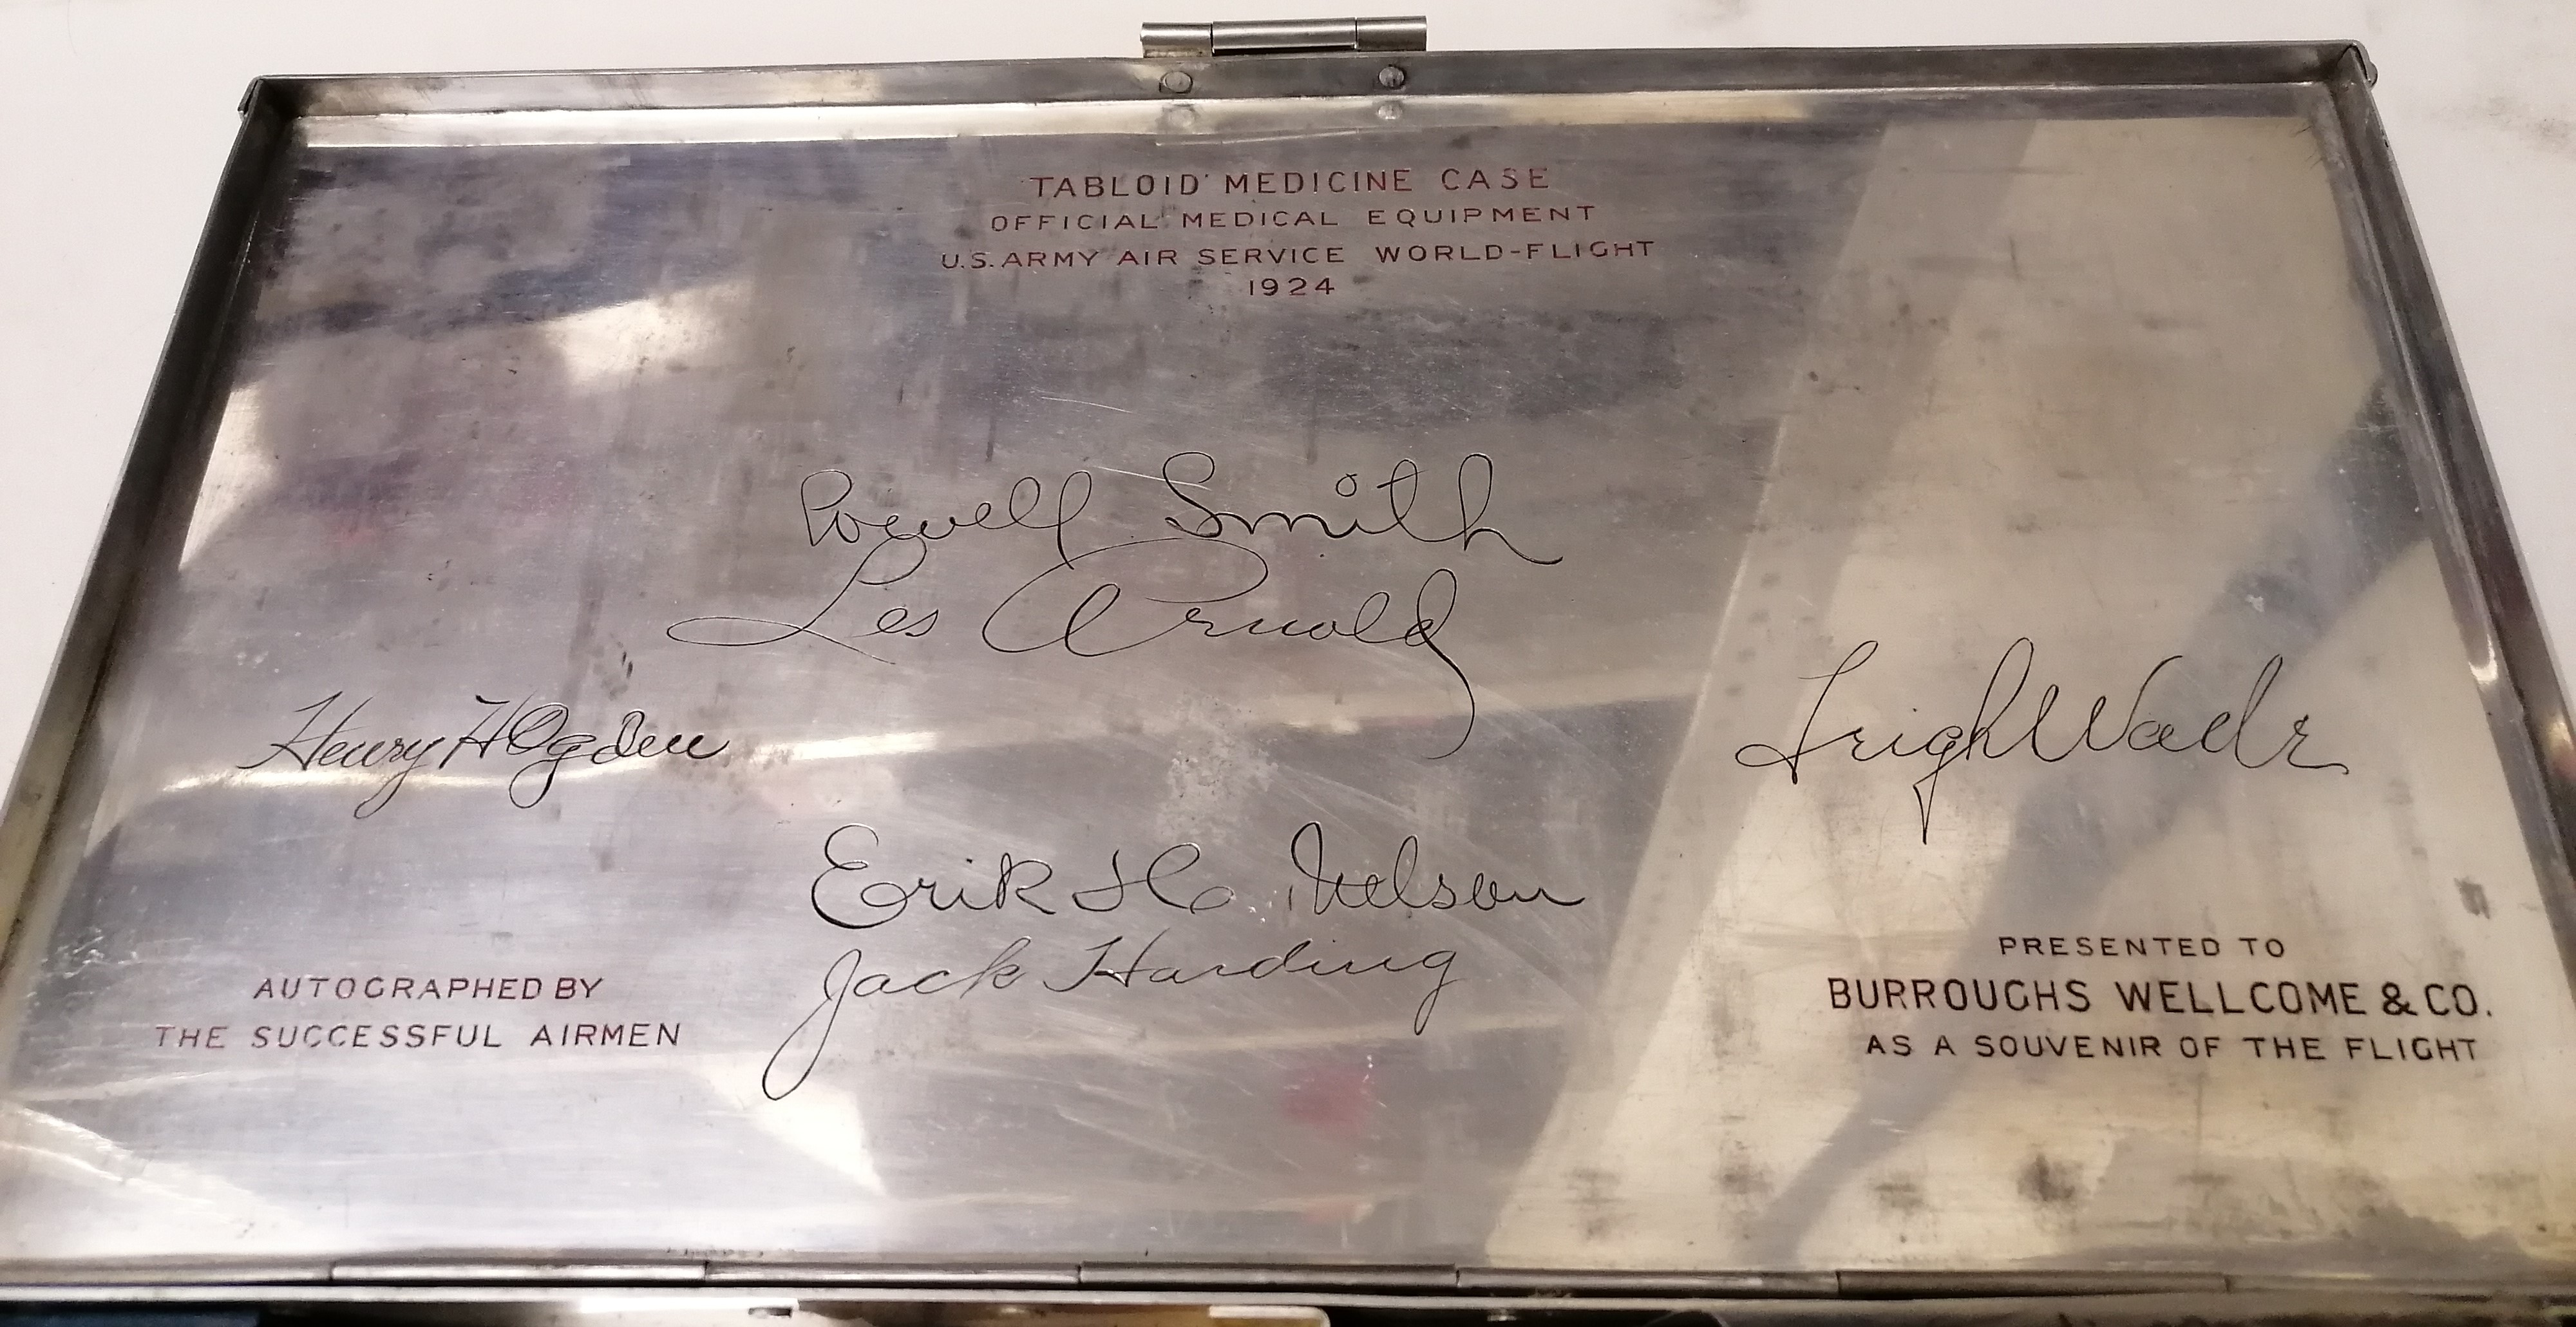 'TABLOID' MEDICINE CASE
OFFICIAL MEDICAL EQUIPMENT
U.S. ARMY AIR SERVICE WORLD-FLIGHT
1924
Lowell Smith
Les Arnold
Henry H Ogden
Leigh Wade
Erik H. Nelson
Jack Harding
AUTOGRAPHED BY
THE SUCCESSFUL AIRMEN
PRESENTED TO
BURROUGHS WELLCOME & CO.
AS A SOUVENIR OF THE FLIGHT